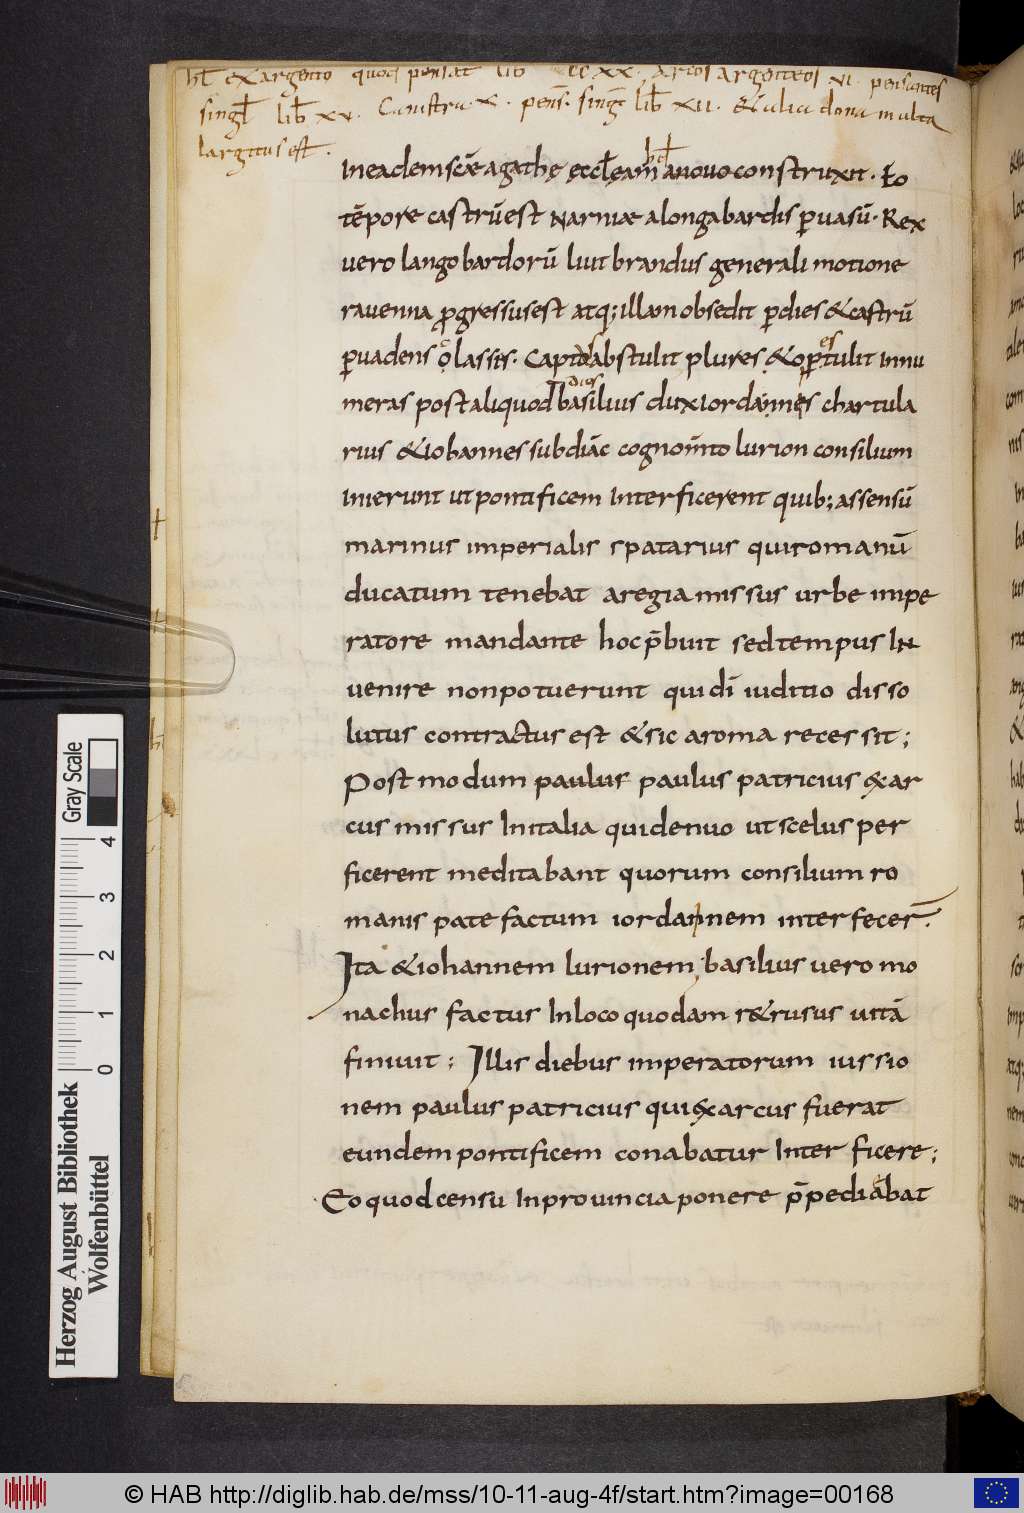 bl̄ exargento quod pensat lib̄ CCCXX. Arcos argenteos VI. pensantes
singl̄ lib̄ XV. Canistra X. pens̄. singl̄ lib̄ XII. & alia dona multa
largitus est.
Ineadem scāe agathę ęccl̄ęam anouo construxit. Eo
tēpore castrū est Narniae alongabardis p̱uasū. Rex
uero langobardorū liutbrandus generali motione
rauenna progressus est atq; illam obsedit p̱dies & castrū
p̱uadens classis. Captos abstulit plures & opes tulit innu
meras post aliquod dies basilius dux iordannes chartula
rius & iohannes subdiāc cognom̄to lurion consilium
inierunt ut pontificem interficerent quib; assensū
marinus imperialis spatarius quiromanū
ducatum tenebat aregia missus urbe impe
ratore mandante hoc p̄buit sed tempus In
uenire nonpotuerunt qui dī iuditio disso
lutus contractus est & sic aroma recessit;
Postmodum paulus paulus patricius exar
cus missus Initalia quidenuo utscelus per
ficerent meditabant quorum consilium ro
manis patefactum iordannem interfecer̄.
Ita & iohannem lurionem, basilius uero mo
nachus factus Inloco quodam r&rusus uitā
finiuit; Illis diebus imperatorum iussio
nem paulus patricius quiexarcus fuerat
eundem pontificem conabatur Interficere;
Eo quod censu Inprouincia ponere p̄pediabat
Gray Scale
0 1 2 3 4
Herzog August Bibliothek
Wolfenbüttel
© HAB http://diglib.hab.de/mss/10-11-aug-4f/start.htm?image=00168